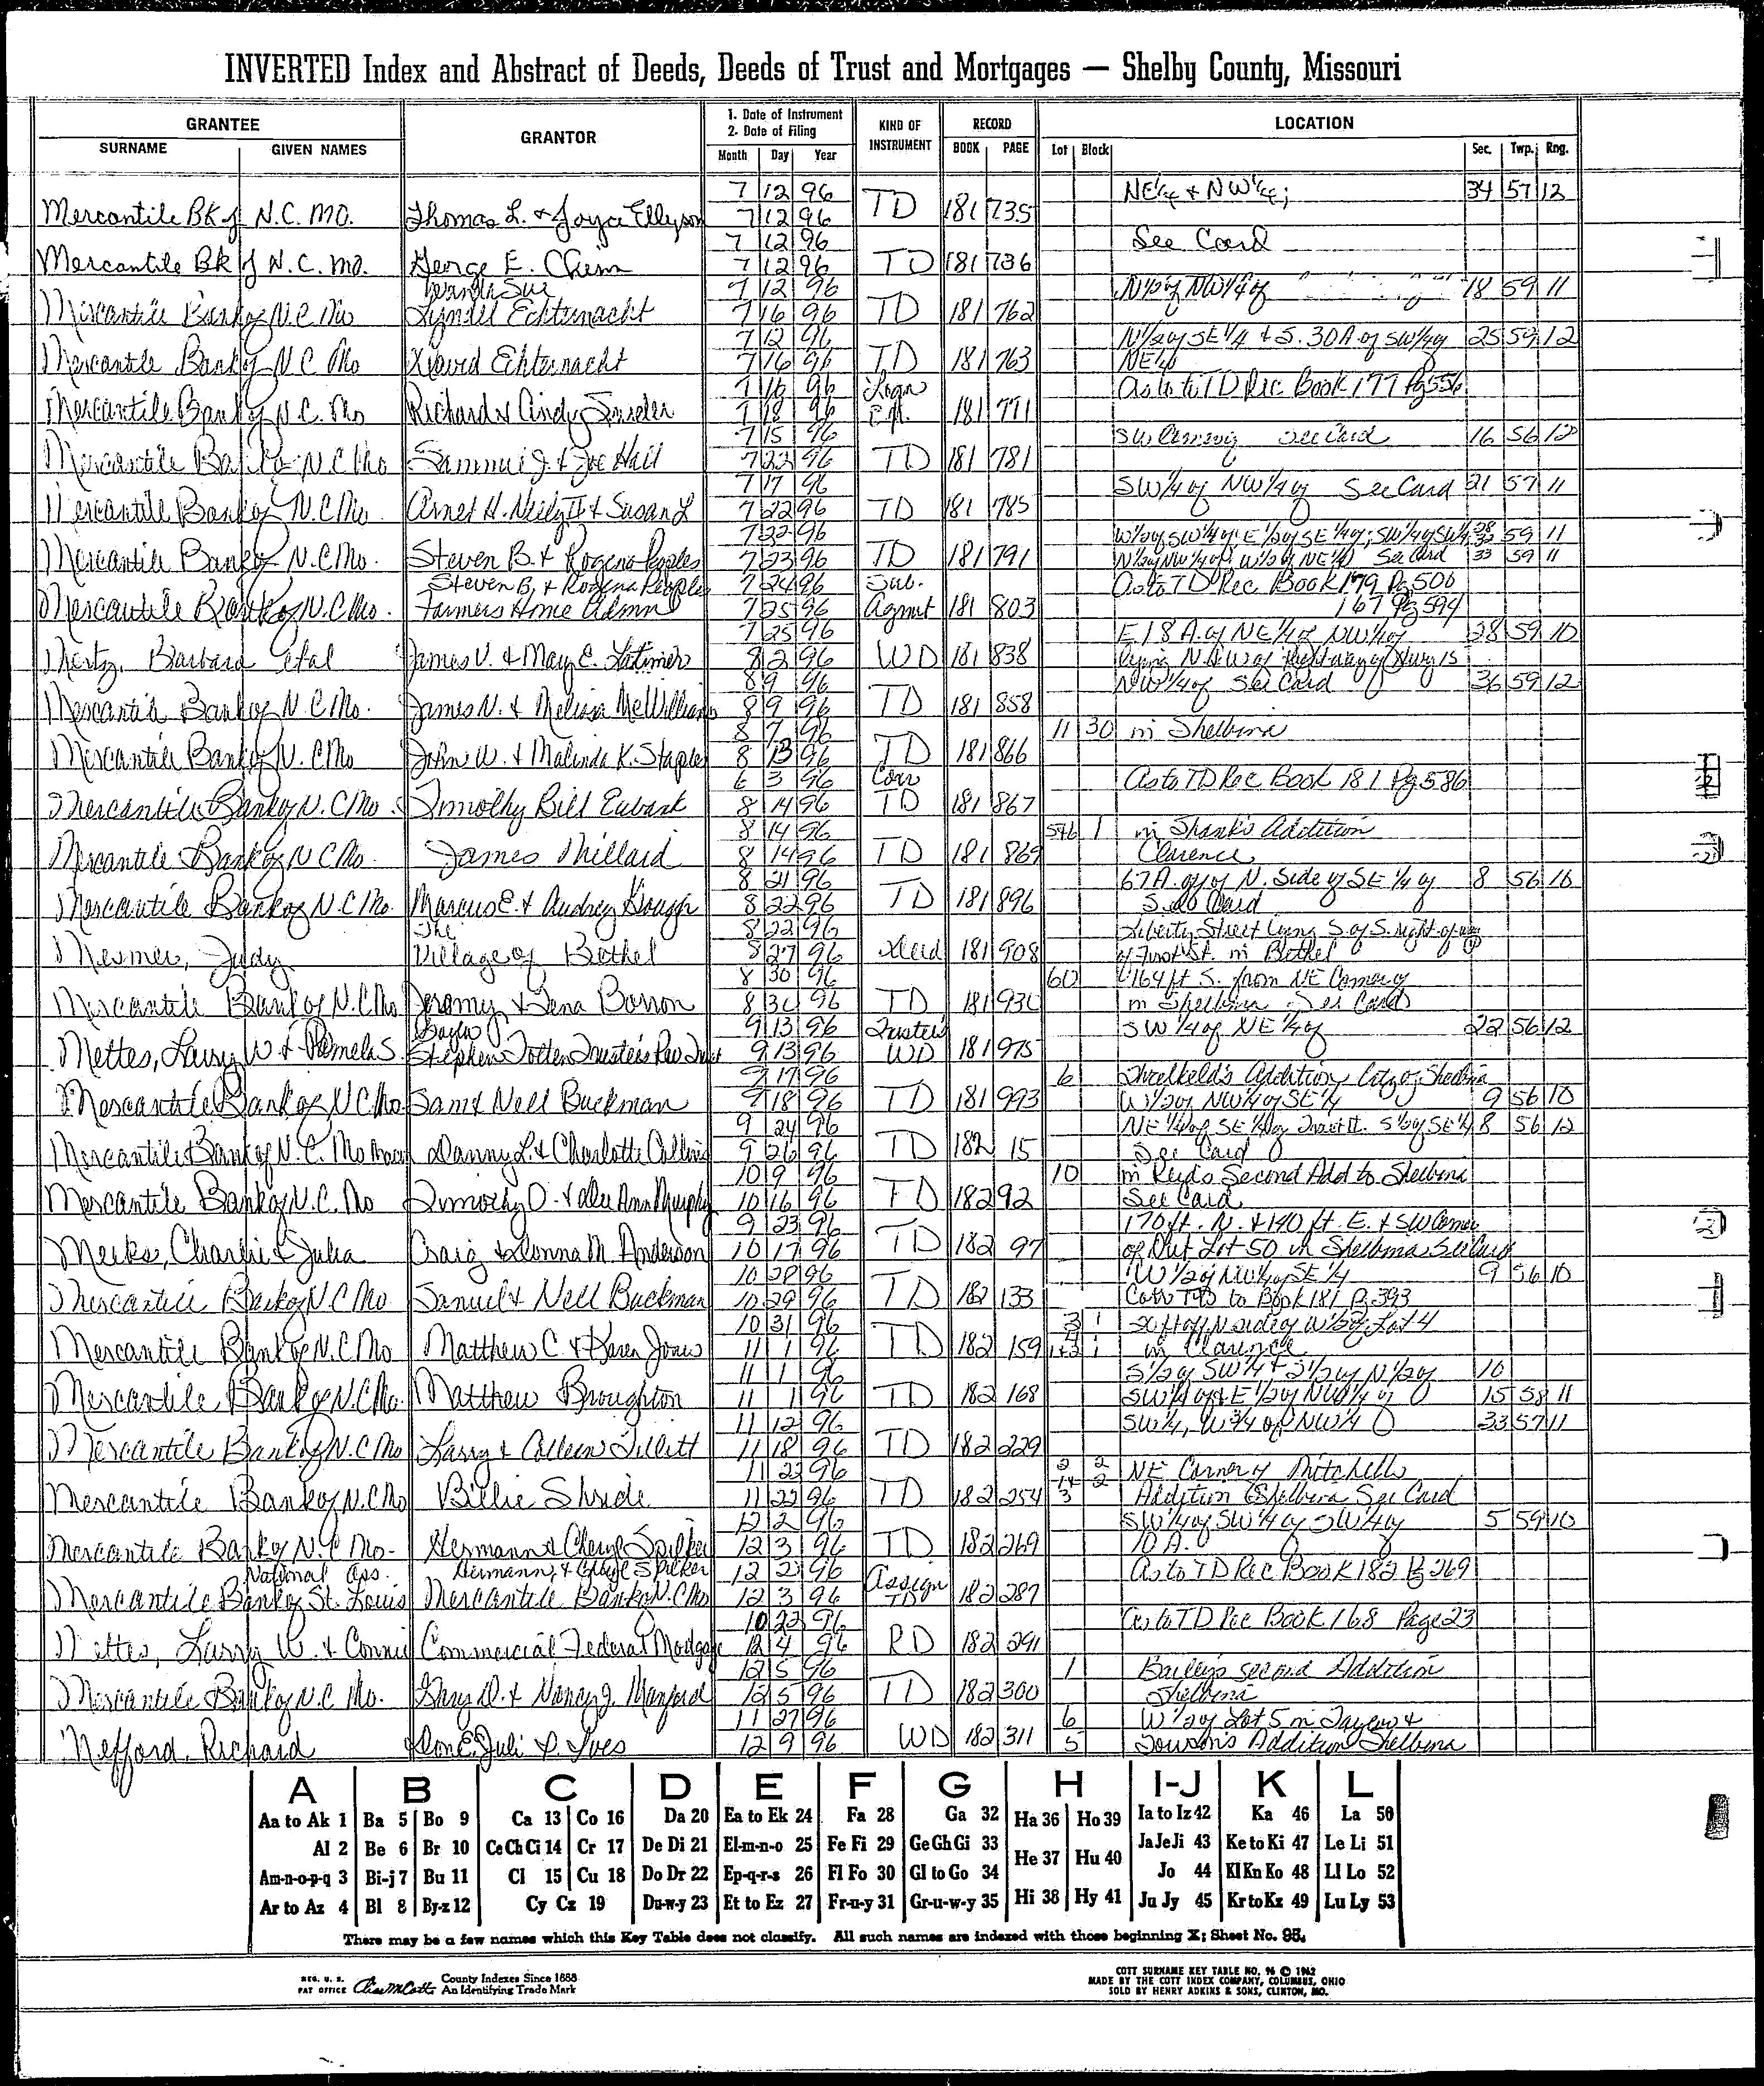 INVERTED Index and Abstract of Deeds, Deeds of Trust and Mortgages — Shelby County, Missouri
GRANTEE GRANTOR 1. Date of Instrument 2. Date of Filing KIND OF INSTRUMENT RECORD LOCATION
SURNAME GIVEN NAMES Month Day Year BOOK PAGE Lot Block Sec. Twp. Rng.
7 12 96 NE 1/4 & NW 1/4; 34 57 12
Mercantile Bk of N.C. MO. Thomas L. & Joyce Ellyson 7 12 96 TD 181 735
7 12 96 See Card
Mercantile Bk of N.C. MO. George E. 7 12 96 TD 181 736
7 12 96 N 1/2 of NW 1/4 of 18 59 11
Mercantile Bank of N.C. Mo Echternacht 7 16 96 TD 181 762
7 12 96 N 1/2 of SE 1/4 & S. 30 A of SW 1/4 of 25 59 12
Mercantile Bank of N C Mo David Echternacht 7 16 96 TD 181 763 NE 1/4
7 16 96 As to TD Rec Book 177 Pg 556
Mercantile Bank of N.C. Mo Richard & Cindy Snider 7 18 96 181 771
7 15 96 SW Corner of See Card 16 56 12
Mercantile Ba N C Mo Hail 7 22 96 TD 181 781
7 17 96 SW 1/4 of NW 1/4 of See Card 21 57 11
Mercantile Bank of N.C Mo. Arnet H. Neily II & Susan L 7 22 96 TD 181 785
7 22 96 W 1/2 of SW 1/4 of; E 1/2 of SE 1/4 of; SW 1/4 of SW 1/4 59 11
Mercantile Bank of N.C Mo. Steven B. & Rogena Peoples 7 23 96 TD 181 791 N 1/2 of NW 1/4 of; W 1/2 of NE 1/4 See Card 33 59 11
Steven B. & Rogena Peoples 7 24 96 Sub. As to TD Rec Book 179 Pg 500
Mercantile Bank of N.C Mo. Farmers Home Admn 7 25 96 Agmt 181 803 167 Pg 594
7 25 96 E 18 A. of NE 1/4 of NW 1/4 of 28 59 10
Mertz, Barbara etal James V. & Mary E. Latimer 8 2 96 WD 181 838 lying N & W of Right way of Hwy 15
8 9 96 NW 1/4 of See Card 36 59 12
Mercantile Bank of N.C Mo. James N. & Melissa McWilliams 8 9 96 TD 181 858
8 7 96 11 30 in Shelbina
Mercantile Bank of N. C Mo John W. & Malinda K. Staples 8 13 96 TD 181 866
6 3 96 Corr As to TD Rec Book 181 Pg 586
Mercantile Bank of N. C Mo. Timothy Bill Eubank 8 14 96 TD 181 867
8 14 96 5&6 1 in Shank's Addition
Mercantile Bank of N C Mo. James Millard 8 14 96 TD 181 869 Clarence
8 21 96 67 A. off of N. Side of SE 1/4 of 8 56 10
Mercantile Bank of N.C Mo. Marcus E. & Audrey Gough 8 22 96 TD 181 896 See Card
The 8 22 96 Liberty Street lying S of S. right of way
Mesmer, Judy Village of Bethel 8 27 96 Deed 181 908 of First St. in Bethel
8 30 96 60 164 ft S. from NE Corner of
Mercantile Bank of N.C Mo Jeramy & Gena Barron 8 30 96 TD 181 930 in Shelbina See Card
9 13 96 Trustee's SW 1/4 of NE 1/4 of 22 56 12
Mettes, Larry W & Pamela S. Stephen Totten Trustee's Rev Trust 9 13 96 WD 181 975
9 17 96 6 Threlkeld's Addition City of Shelbina
Mercantile Bank of N C Mo Sam & Nell Buckman 9 18 96 TD 181 993 W 1/2 of NW 1/4 of SE 1/4 9 56 10
9 24 96 NE 1/4 of SE 1/4 of Tract II. S 1/2 of SE 1/4 8 56 12
Mercantile Bank of N. C. Mo Danny L. & Charlotte Collins 9 26 96 TD 182 15 See Card
10 9 96 10 in Reid's Second Add to Shelbina
Mercantile Bank of N.C. Mo Timothy O. & Dee Ann Murphy 10 16 96 TD 182 92 See Card
9 23 96 170 ft. N. & 140 ft. E. & SW Corner
Meeks, Charlie & Julia Craig & Donna M. Anderson 10 17 96 TD 182 97 of Out Lot 50 in Shelbina See Card
10 28 96 W 1/2 of NW 1/4 of SE 1/4 9 56 10
Mercantile Bank of N C Mo Samuel & Nell Buckman 10 29 96 TD 182 133 Corr TD to Book 181 Pg 393
10 31 96 3 1 ft off N side of W 1/2 of Lot 4
Mercantile Bank of N.C Mo Matthew C. & Karen Jones 11 1 96 TD 182 159 1 in Clarence
11 1 96 S 1/2 of SW 1/4 & S 1/2 of N 1/2 of 10
Mercantile Bank of N.C Mo. Matthew Broughton 11 1 96 TD 182 168 SW 1/4 of & E 1/2 of NW 1/4 of 15 58 11
11 12 96 SW 1/4, W 3/4 of NW 1/4 33 57 11
Mercantile Bank of N.C Mo Larry & Colleen Tillett 11 18 96 TD 182 229
11 22 96 2 2 NE Corner of Mitchells
Mercantile Bank of N.C Mo Billie Shride 11 22 96 TD 182 254 Addition Shelbina See Card
12 2 96 SW 1/4 of SW 1/4 of SW 1/4 of 5 59 10
Mercantile Bank of N.C Mo. Hermann & Cheryl Spilker 12 3 96 TD 182 269 10 A.
National Ass. Hermann & Cheryl Spilker 12 2 96 As to TD Rec Book 182 Pg 269
Mercantile Bank of St. Louis Mercantile Bank of N.C Mo 12 3 96 Assign TD 182 287
10 22 96 As to TD Rec Book 168 Page 23
Mettes, Larry W. & Connie Commercial Federal Mortgage 12 4 96 RD 182 291
12 5 96 1 Bailey's Second Addition
Mercantile Bank of N.C Mo. Gary D. & Nancy J. Manford 12 5 96 TD 182 300 Shelbina
11 27 96 6 W 1/2 of Lot 5 in Taylor &
Mefford, Richard Don E. Juli P. Ives 12 9 96 WD 182 311 5 Towson's Addition Shelbina
A B C D E F G H I-J K L
Aa to Ak 1 Ba 5 Bo 9 Ca 13 Co 16 Da 20 Ea to Ek 24 Fa 28 Ga 32 Ha 36 Ho 39 Ia to Iz 42 Ka 46 La 50
Al 2 Be 6 Br 10 Ce Ch Ci 14 Cr 17 De Di 21 El-m-n-o 25 Fe Fi 29 Ge Gh Gi 33 He 37 Hu 40 Ja Je Ji 43 Ke to Ki 47 Le Li 51
Am-n-o-p-q 3 Bi-j 7 Bu 11 Cl 15 Cu 18 Do Dr 22 Ep-q-r-s 26 Fl Fo 30 Gl to Go 34 Hi 38 Hy 41 Jo 44 Kl Kn Ko 48 Ll Lo 52
Ar to Az 4 Bl 8 By-z 12 Cy Cz 19 Du-w-y 23 Et to Ez 27 Fr-u-y 31 Gr-u-w-y 35 Ju Jy 45 Kr to Kz 49 Lu Ly 53
There may be a few names which this Key Table does not classify. All such names are indexed with those beginning X; Sheet No. 95.
REG. U. S. PAT OFFICE County Indexes Since 1888 An Identifying Trade Mark
COTT SURNAME KEY TABLE NO. 96 © 1962
MADE BY THE COTT INDEX COMPANY, COLUMBUS, OHIO
SOLD BY HENRY ADKINS & SONS, CLINTON, MO.